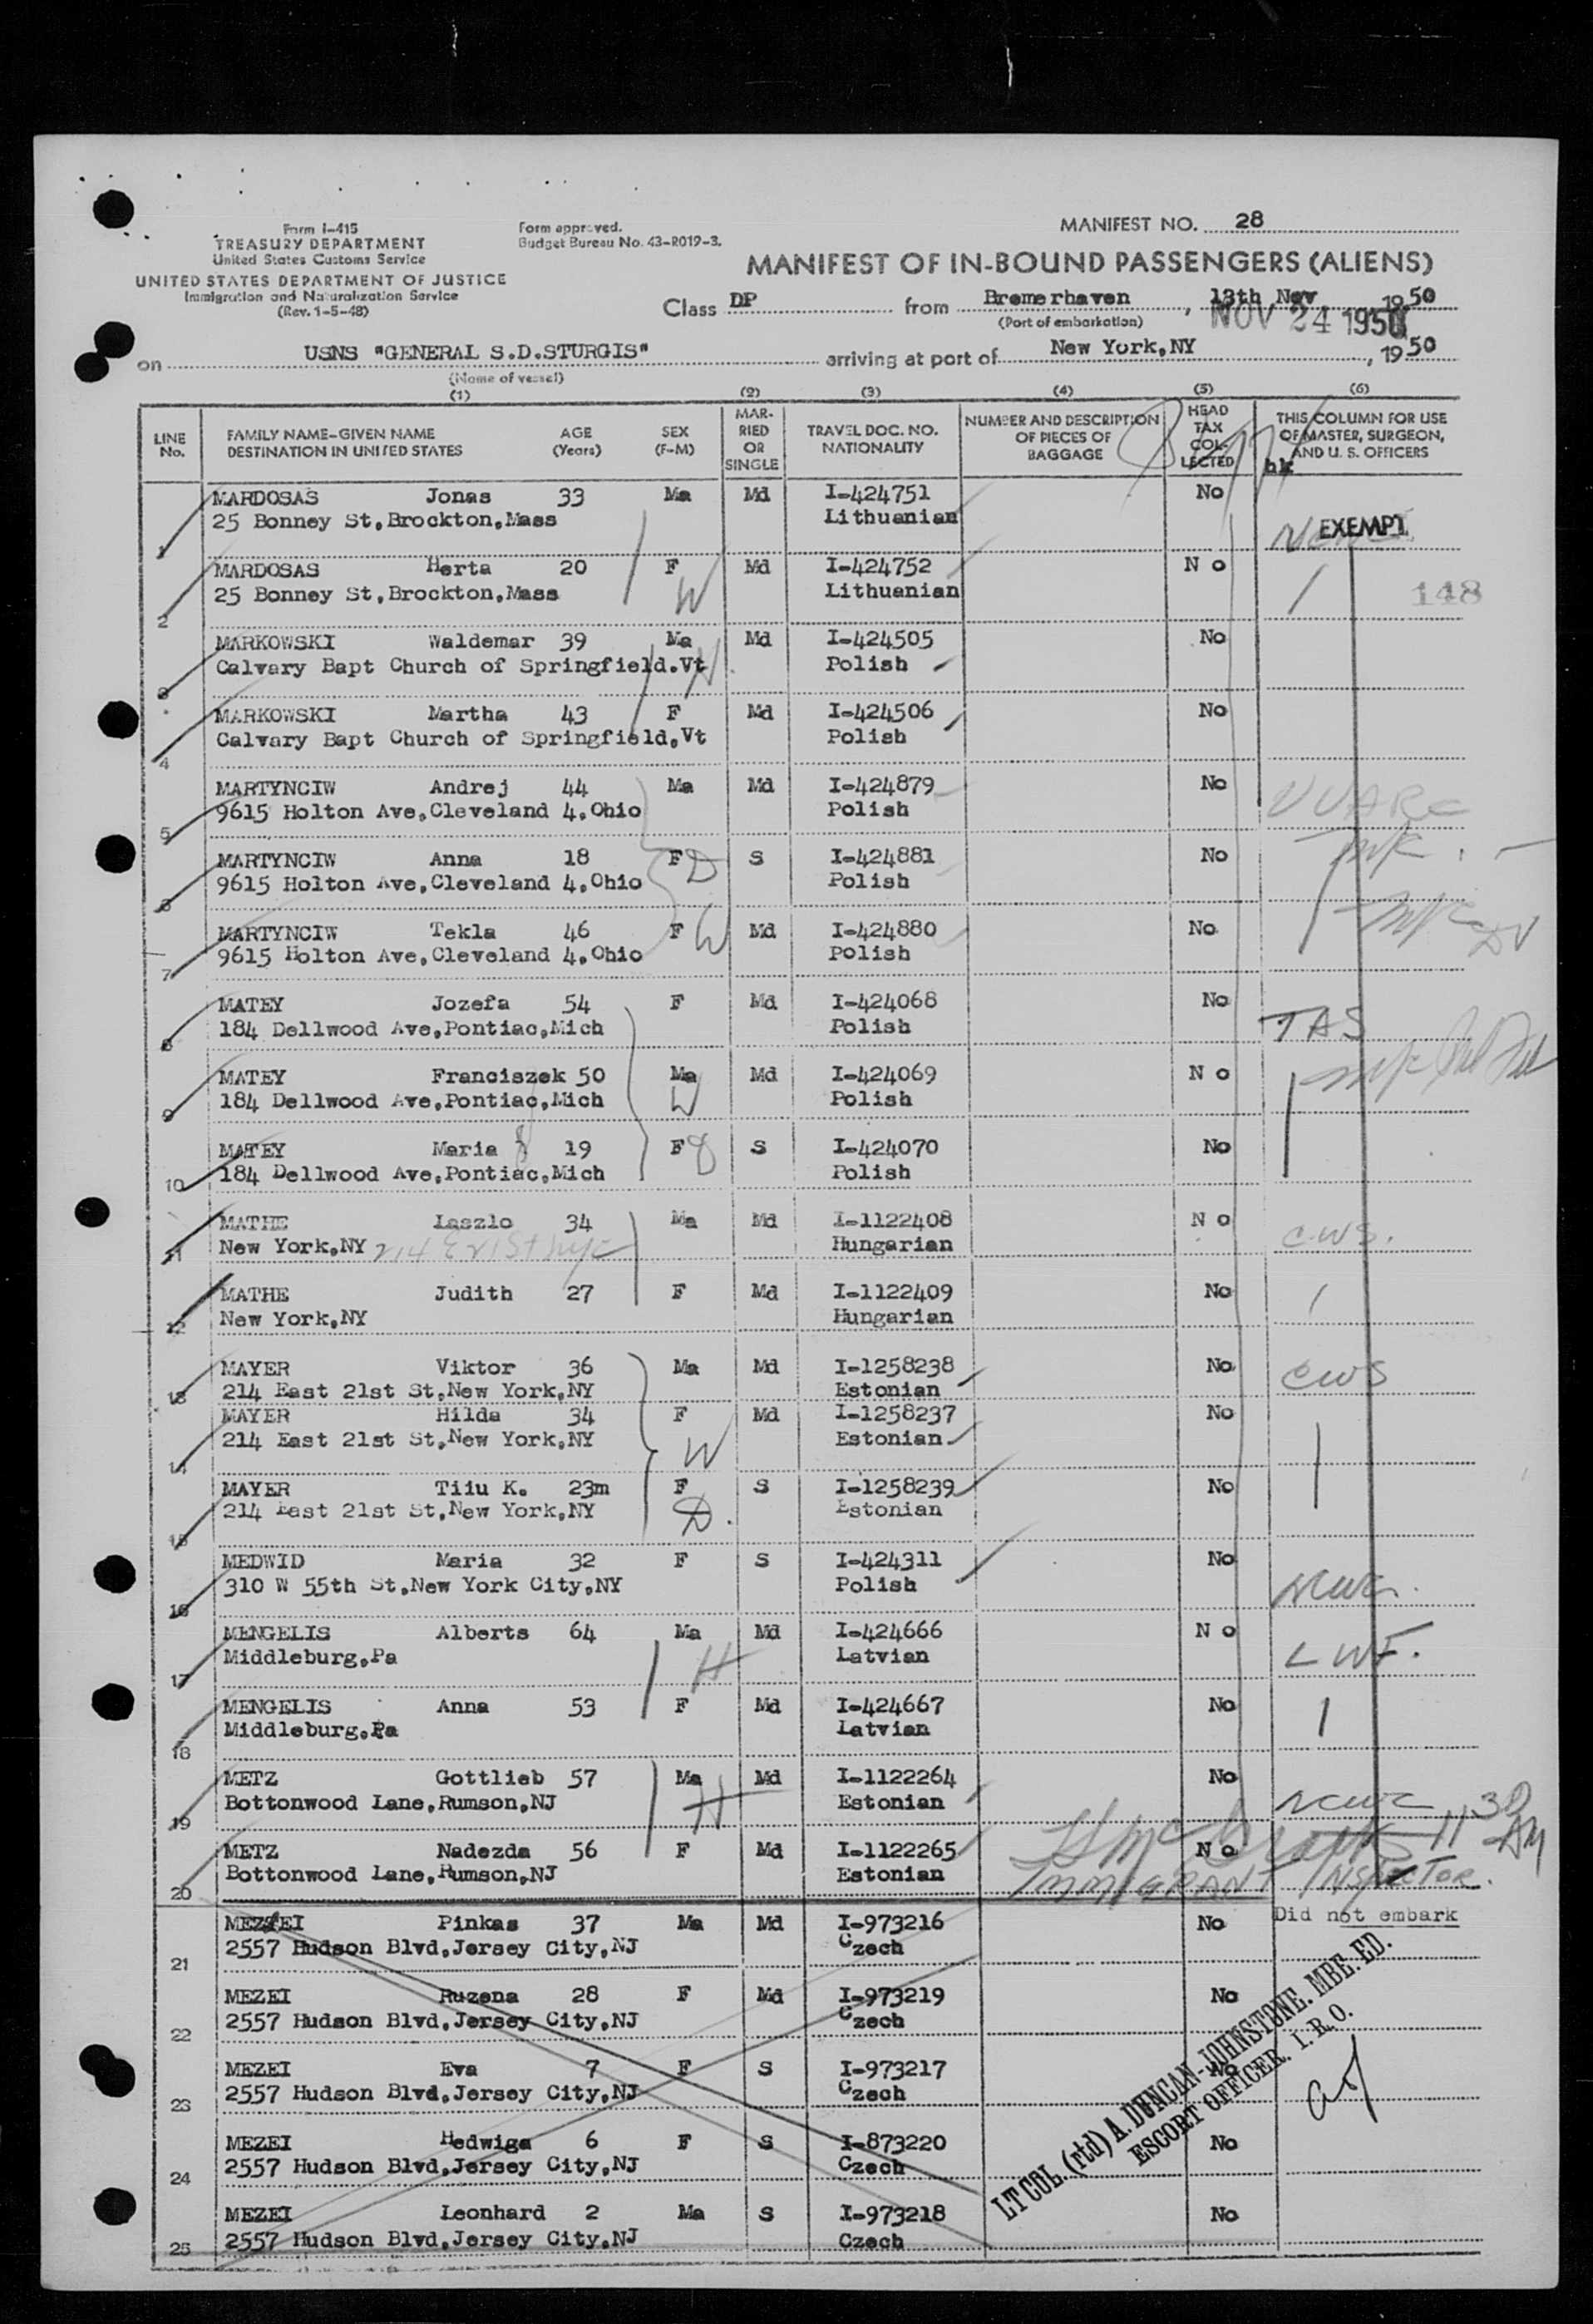 Form I-415
TREASURY DEPARTMENT
United States Customs Service
UNITED STATES DEPARTMENT OF JUSTICE
Immigration and Naturalization Service
(Rev. 1-5-48)
Form approved.
Budget Bureau No. 43-R019-3.
MANIFEST NO. 28
MANIFEST OF IN-BOUND PASSENGERS (ALIENS)
Class DP from Bremerhaven, 13th Nov 1950
(Port of embarkation)
NOV 24 1950
on USNS "GENERAL S.D.STURGIS" arriving at port of New York,NY, 1950
(Name of vessel)
(1) (2) (3) (4) (5) (6)
LINE No.
FAMILY NAME-GIVEN NAME AGE (Years) SEX (F-M)
DESTINATION IN UNITED STATES
MARRIED OR SINGLE
TRAVEL DOC. NO. NATIONALITY
NUMBER AND DESCRIPTION OF PIECES OF BAGGAGE
HEAD TAX COLLECTED
THIS COLUMN FOR USE OF MASTER, SURGEON, AND U. S. OFFICERS
1 MARDOSAS Jonas 33 Ma Md I-424751 No
25 Bonney St,Brockton,Mass Lithuanian EXEMPT
2 MARDOSAS Herta 20 F Md I-424752 N o
25 Bonney St,Brockton,Mass W Lithuanian 148
3 MARKOWSKI Waldemar 39 Ma Md I-424505 No
Calvary Bapt Church of Springfield.Vt Polish
4 MARKOWSKI Martha 43 F Md I-424506 No
Calvary Bapt Church of Springfield,Vt Polish
5 MARTYNCIW Andrej 44 Ma Md I-424879 No
9615 Holton Ave,Cleveland 4,Ohio Polish
6 MARTYNCIW Anna 18 F D S I-424881 No
9615 Holton Ave,Cleveland 4,Ohio Polish
7 MARTYNCIW Tekla 46 F W Md I-424880 No
9615 Holton Ave,Cleveland 4,Ohio Polish
8 MATEY Jozefa 54 F Md I-424068 No
184 Dellwood Ave,Pontiac,Mich Polish
9 MATEY Franciszek 50 Ma Md I-424069 N o
184 Dellwood Ave,Pontiac,Mich W Polish
10 MATEY Maria 19 F S I-424070 No
184 Dellwood Ave,Pontiac,Mich Polish
11 MATHE Laszlo 34 Ma Md I-1122408 N o
New York,NY 214 E 21 St NYC Hungarian CWS.
12 MATHE Judith 27 F Md I-1122409 No
New York,NY Hungarian
13 MAYER Viktor 36 Ma Md I-1258238 No
214 East 21st St,New York,NY Estonian CWS
14 MAYER Hilda 34 F Md I-1258237 No
214 East 21st St,New York,NY W Estonian
15 MAYER Tiiu K. 23m F S I-1258239 No
214 East 21st St,New York,NY D. Estonian
16 MEDWID Maria 32 F S I-424311 No
310 W 55th St,New York City,NY Polish NCWC.
17 MENGELIS Alberts 64 Ma Md I-424666 N o
Middleburg,Pa H Latvian LWF.
18 MENGELIS Anna 53 F Md I-424667 No
Middleburg,Pa Latvian
19 METZ Gottlieb 57 Ma Md I-1122264 No
Bottonwood Lane,Rumson,NJ H Estonian NCWC
20 METZ Nadezda 56 F Md I-1122265 N o
Bottonwood Lane,Rumson,NJ Estonian
IMMIGRANT INSPECTOR. 1130 AM
21 MEZEI Pinkas 37 Ma Md I-973216 No Did not embark
2557 Hudson Blvd,Jersey City,NJ Czech
22 MEZEI Ruzena 28 F Md I-973219 No
2557 Hudson Blvd,Jersey City,NJ Czech
23 MEZEI Eva 7 F S I-973217 No
2557 Hudson Blvd,Jersey City,NJ Czech
24 MEZEI Hedwiga 6 F S I-873220 No
2557 Hudson Blvd,Jersey City,NJ Czech
25 MEZEI Leonhard 2 Ma S I-973218 No
2557 Hudson Blvd,Jersey City,NJ Czech
LT COL. (rtd) A. DUNCAN-JOHNSTONE. MBE. ED.
ESCORT OFFICER. I. R. O.